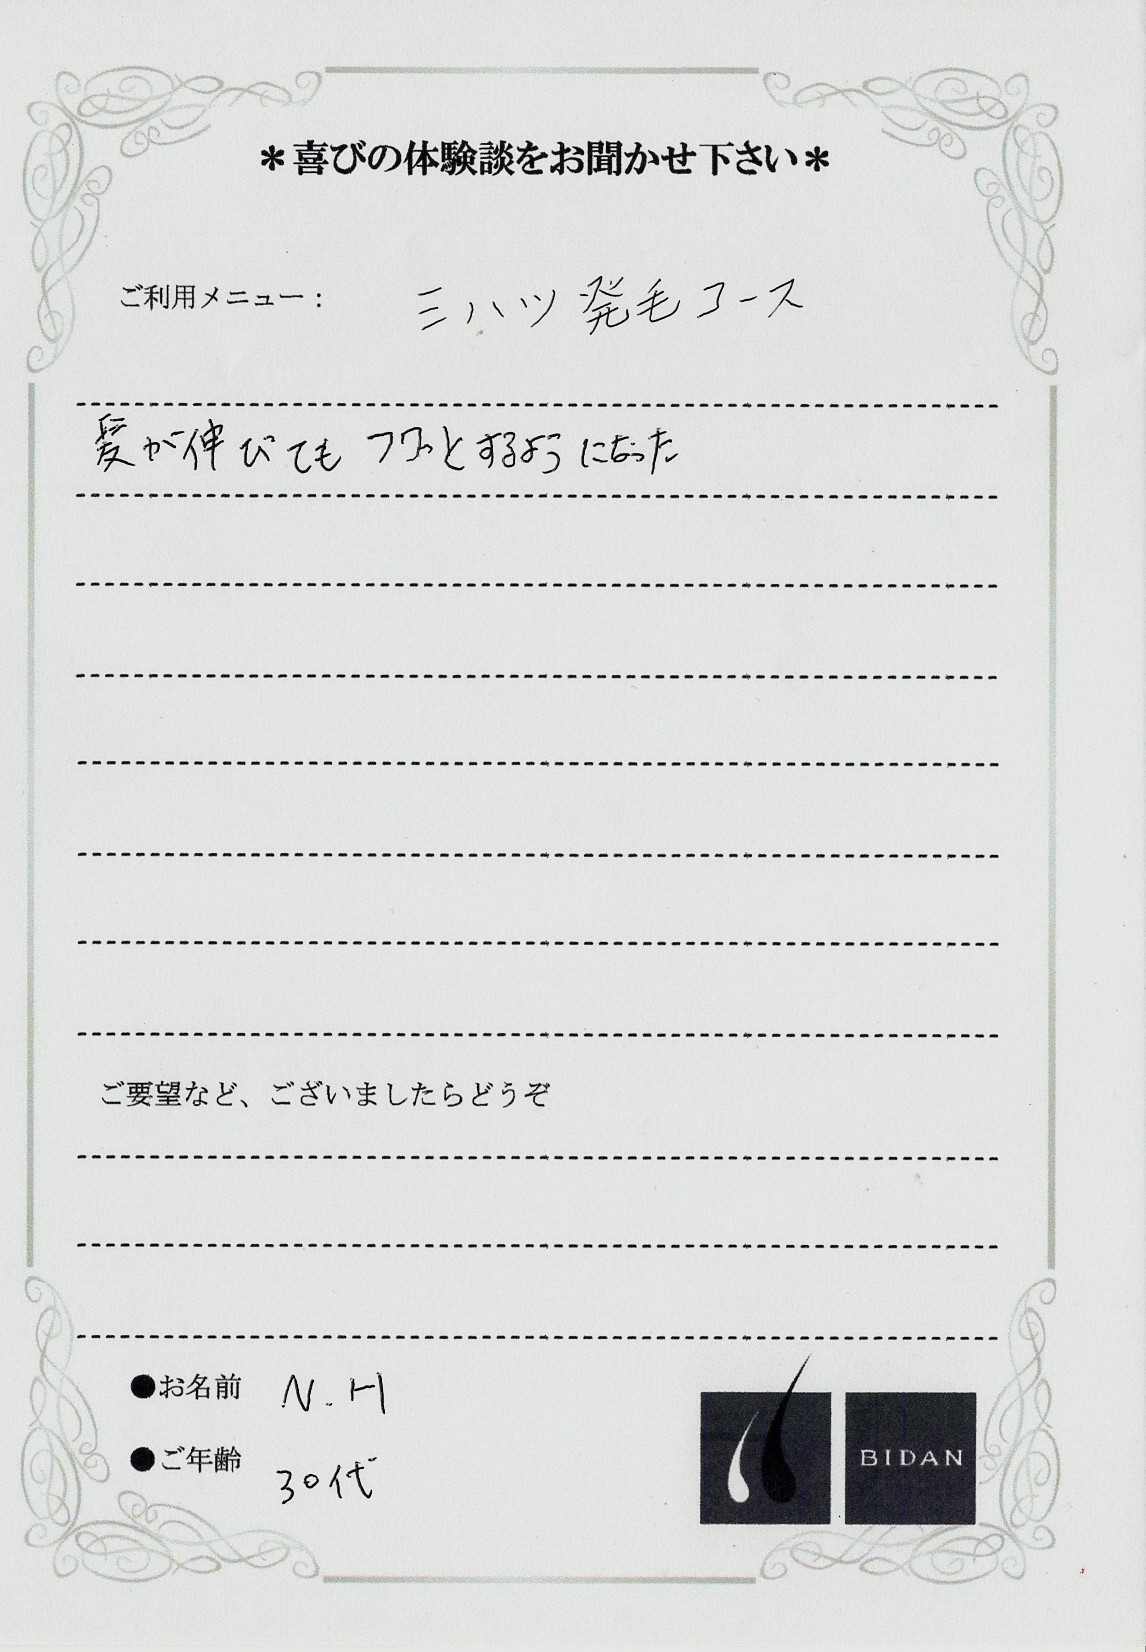 ＊喜びの体験談をお聞かせ下さい＊
ご利用メニュー： ミハツ発毛コース
髪が伸びても フワッとするようになった
ご要望など、ございましたらどうぞ
●お名前 N.H
●ご年齢 30代
BIDAN